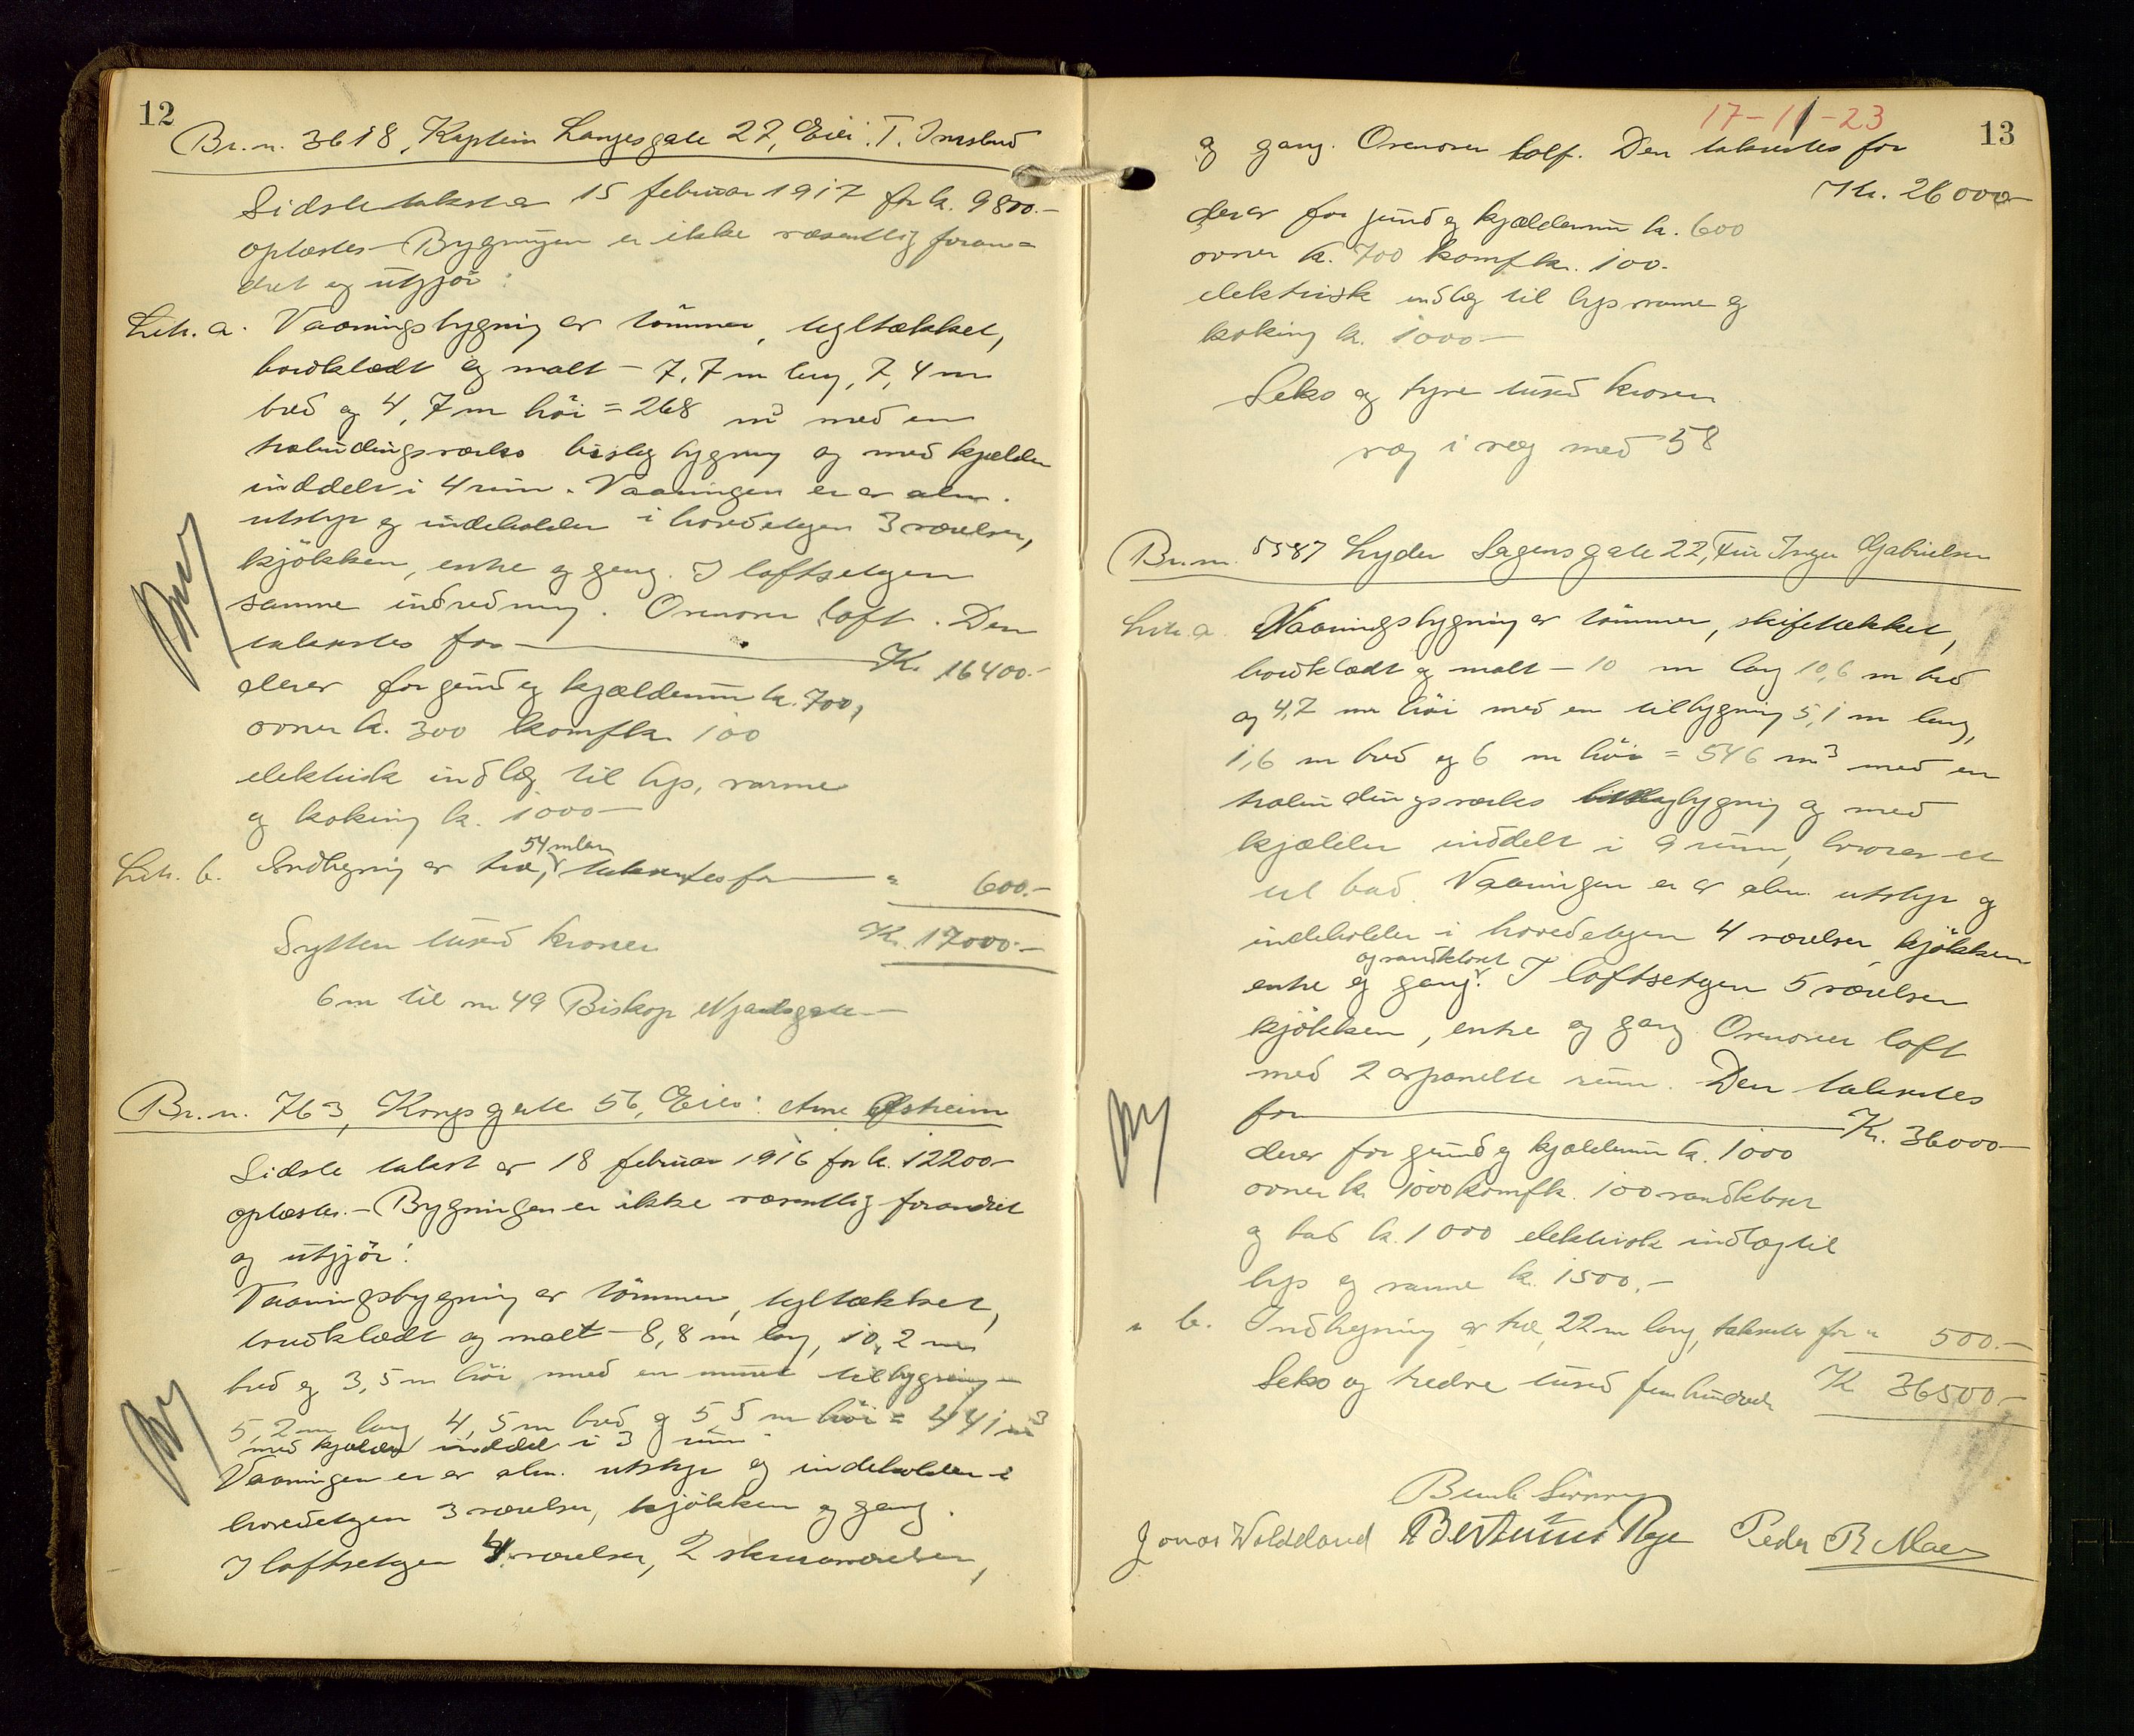 12
Br.n. 3618, Kaptein Langesgate 27, Eier: T.
Sidste takst er 15 februar 1917 for kr. 9800.-
oplæstes - Bygningen er ikke væsentlig foran=
dret og utgjör:
Litr. a. Vaaningsbygning av tömmer, tegltækket,
bordklædt og malt - 7,7 m lang, 7,4 m
bred og 4,7 m höi = 268 m³ med en
halvindingsværks bislagbygning og med kjælder
inddelt i 4 rum. Vaaningen er av alm.
utstyr og indeholder i hovedetagen 3 værelser,
kjökken, entre og gang. I loftsetagen
samme indredning. Ovenover loft. Den
takstertes for Kr. 16400.-
derav for grund og kjælderrum kr. 700,
ovner kr. 300 komf kr. 100
elektrisk indlæg til lys, varme
og koking kr. 1000-
Litr. b. Indhegning av træ, 54 m lang, takstertes for " 600.-
Sytten tusend kroner Kr. 17000.-
6 m til nr 49 Biskop Njaalsgate-
Br.n. 763, Kongsgate 56, Eier: Arne Østheim
Sidste takst av 18 februar 1916 for kr. 12200-
oplæstes. - Bygningen er ikke væsentlig forandret
og utgjör:
Vaaningsbygning av tömmer, tegltækket,
bordklædt og malt - 8,8 m lang, 10,2 m
bred og 3,5 m höi med en muret tilbygning -
5,2 m lang 4,5 m bred og 5,5 m höi = 441 m³
med kjælder inddelt i 3 rum.
Vaaningen er av alm. utstyr og indeholder i
hovedetagen 3 værelser, kjökken og gang.
I loftsetagen 4 værelser, 2 skraaværelser,
17-11-23
13
og gang. Ovenover loft. Den takstertes for
Kr. 26000-
derav for grund og kjælderrum kr. 600
ovner kr. 700 komf kr. 100.
elektrisk indlæg til lys varme og
koking kr. 1000-
Seks og tyve tusend kroner
væg i væg med 58
Br.n. 5587 Lyder Sagensgate 22, Inger Gabrielsen
Litr. a. Vaaningsbygning av tömmer, skifertækket,
bordklædt og malt - 10 m lang 10,6 m bred
og 4,7 m höi med en tilbygning 5,1 m lang,
1,6 m bred og 6 m höi = 546 m³ med en
halvindingsværks bislagbygning og med
kjælder inddelt i 9 rum, hvorav et
til bad. Vaaningen er av alm. utstyr og
indeholder i hovedetagen 4 værelser, kjökken
entre og gang og vandkloset. I loftsetagen 5 værelser
kjökken, entre og gang. Ovenover loft
med 2 avpanelte rum. Den takstertes
for Kr. 36000-
derav for grund og kjælderrum kr. 1000
ovner kr. 1000 komf kr. 100 vandkloset
og bad kr. 1000 elektrisk indlæg til
lys og varme kr. 1500.-
" b. Indhegning av træ, 22 m lang, takstertes for " 500.-
Seks og tredve tusend fem hundrede Kr 36500-
Jonas Waldeland Bertinius Rege Peder R.